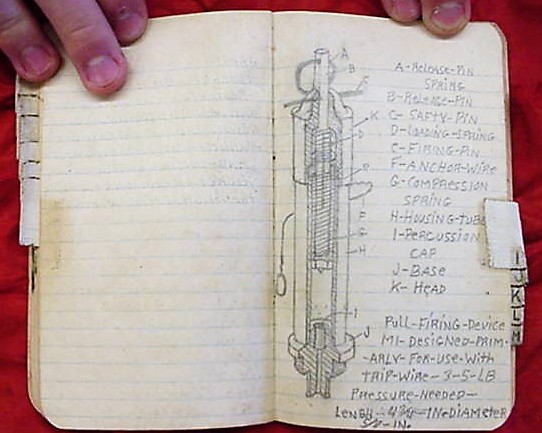 A
B
C
K
D
E
F
G
H
I
J
A-RELEASE-PIN
SPRING
B-RELEASE-PIN
C-SAFTY-PIN
D-LOADING-SPRING
C-FIRING-PIN
F-ANCHOR-WIRE
G-COMPRESSION
SPRING
H-HOUSING-TUBE
I-PERCUSSION
CAP
J-BASE
K-HEAD
PULL-FIRING-DEVICE
M1-DESIGNED-PRIM-
ARLY-FOR-USE-WITH
TRIP-WIRE-3-5-LB
PRESSURE-NEEDED-
LENGH-4¾-IN-DIAMETER
IN.
I
J
K
L
M